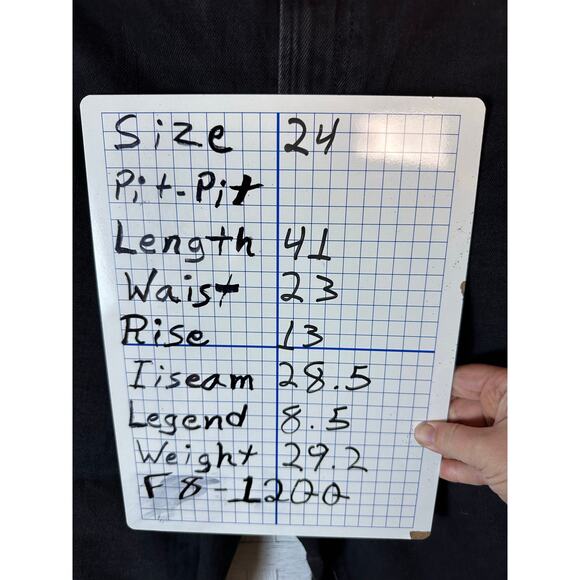 Size 24
Pit-Pit
Length 41
Waist 23
Rise 13
Iiseam 28.5
Legend 8.5
Weight 29.2
F8-1200